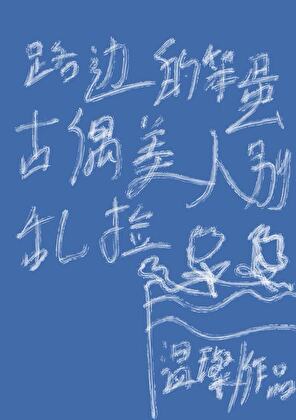 路边的笨蛋
古偶美人别
乱捡
温璨作品